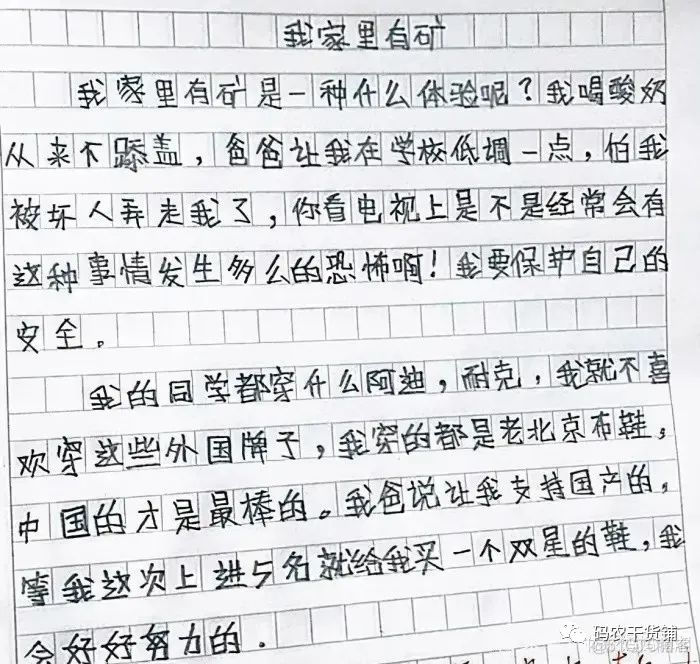 我家里有矿
我家里有矿是一种什么体验呢？我喝酸奶
从来不舔盖，爸爸让我在学校低调一点，怕我
被坏人弄走我了，你看电视上是不是经常会有
这种事情发生多么的恐怖啊！我要保护自己的
安全。
我的同学都穿什么阿迪，耐克，我就不喜
欢穿这些外国牌子，我穿的都是老北京布鞋，
中国的才是最棒的。我爸说让我支持国产的，
等我这次上进5名就给我买一个双星的鞋，我
会好好努力的．
码农干货铺